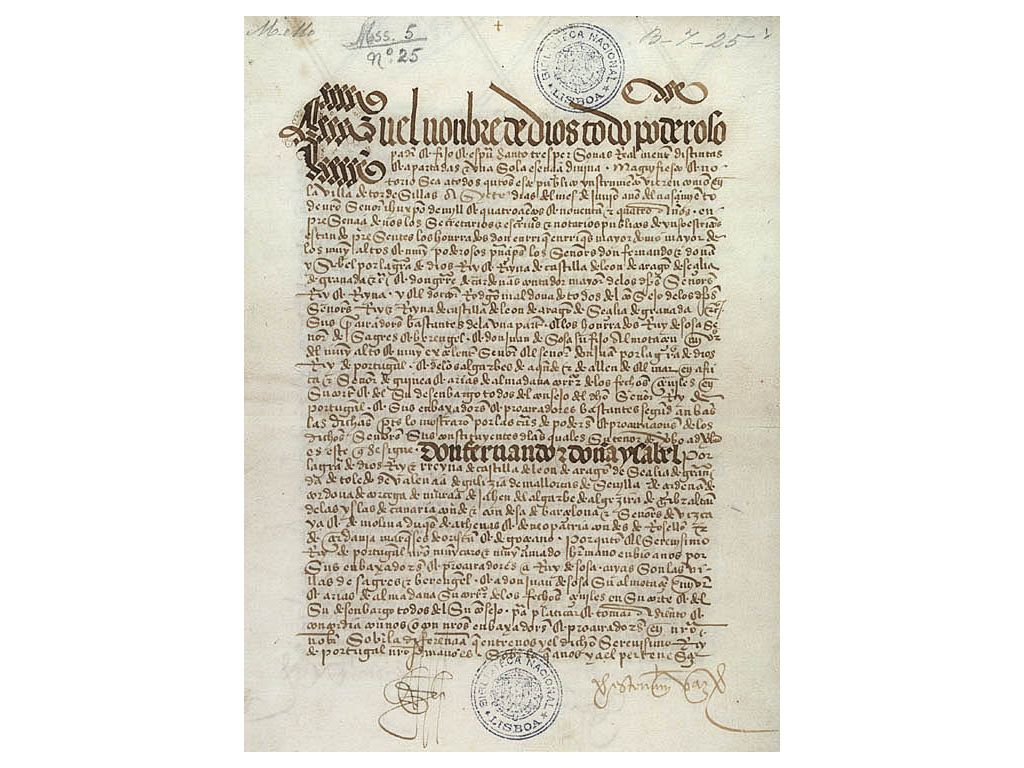 Mss. 5
Nº 25
B-7-25
BIBLIOTECA NACIONAL
LISBOA
En el nonbre de dios todo poderoso
padre & fijo & espu santo tres personas Real mente distintas
& apartadas & una sola esençia divina. Magnifiesto & no
torio sea a todos quantos este publico ynstrumento vieren como en
la villa de tordesillas a syete dias del mes de junio año del nasçimiento
de nuestro Señor ihu xpo de mill & quatroçientos & noventa & quatro años. en
presençia de nos los Secretarios & escrivanos & notarios publicos de yuso escriptos
estando presentes los honrrados don enrrique enrriques mayordomo mayor de
los muy altos & muy poderosos prinçipes los Señores don fernando & doña
ysabel por la graçia de dios Rey & Reyna de castilla de leon de aragon de seçilia
de granada & & don gutierre de cardenas contador mayor de los dichos Señores
Rey & Reyna. y el doctor Rodrigo maldonado todos del consejo de los dichos
Señores Rey & Reyna de castilla de leon de aragon de Seçilia de granada
Sus procuradores bastantes de la una parte. & los honrrados Ruy de sosa Se
ñor de Sagres & berengel. & don juan de Sosa su fijo Almotaçen mayor
del muy alto & muy exçelente Señor el señor don juan por la graçia de dios
Rey de portugal. & de los algarbes de aquende & de allende el mar en afri
ca & Señor de guinea & arias de almadana de los fechos çeviles en
Su corte & del Su desenbargo todos del consejo del dicho Señor Rey de
portugal. & Sus enbaxadores & procuradores bastantes segund anbas
las dichas partes lo mostraron por las cartas de poderes & procuraçiones de los
dichos Señores Sus constituyentes de las quales Su tenor de
es este que se sigue Don fernando & doña ysabel por
la graçia de dios Rey & Reyna de castilla de leon de aragon de Seçilia de grana
da de toledo de valençia de galizia de mallorcas de Sevylla de çerdeña de
cordova de corçega de murçia de jahen del algarbe de algezira de gibraltar
de las yslas de canaria conde & condesa de barçelona & Señores de vizca
ya & de molina duques de athenas & de neopatria condes de Rosellon &
de çerdania marqueses de oristan & de goçiano. Por quanto el Serenisimo
Rey de portugal nuestro muy caro & muy amado hermano enbio a nos por
Sus enbaxadores & procuradores a Ruy de sosa. cuyas Son las vi
llas de sagres & berengel. & a don juan de sosa Su almotaçen mayor
& arias de almadana de los fechos çeviles en Su corte & del
Su desenbargo todos del Su consejo. para platicar & tomar asiento &
concordia con nos o con nuestros enbaxadores & procuradores en nuestro
nonbre Sobre la diferençia que entre nos y el dicho Serenisimo Rey
de portugal nuestro hermano es. Sobre lo que a nos y a el pertenesçe
BIBLIOTECA NACIONAL
LISBOA